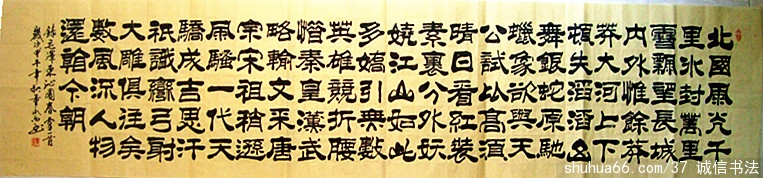 北國風光千
里冰封萬里
雪飄望長城
內外惟餘莽
莽大河上下
頓失滔滔山
舞銀蛇原馳
蠟象欲與天
公試比高須
晴日看紅裝
素裹分外妖
嬈江山如此
多嬌引無數
英雄競折腰
惜秦皇漢武
略輸文采唐
宗宋祖稍遜
風騷一代天
驕成吉思汗
祇識彎弓射
大雕俱往矣
數風流人物
還看今朝
錄毛澤東沁園春雪一首
歲次甲午年
shuhua66.com/37 诚信书法